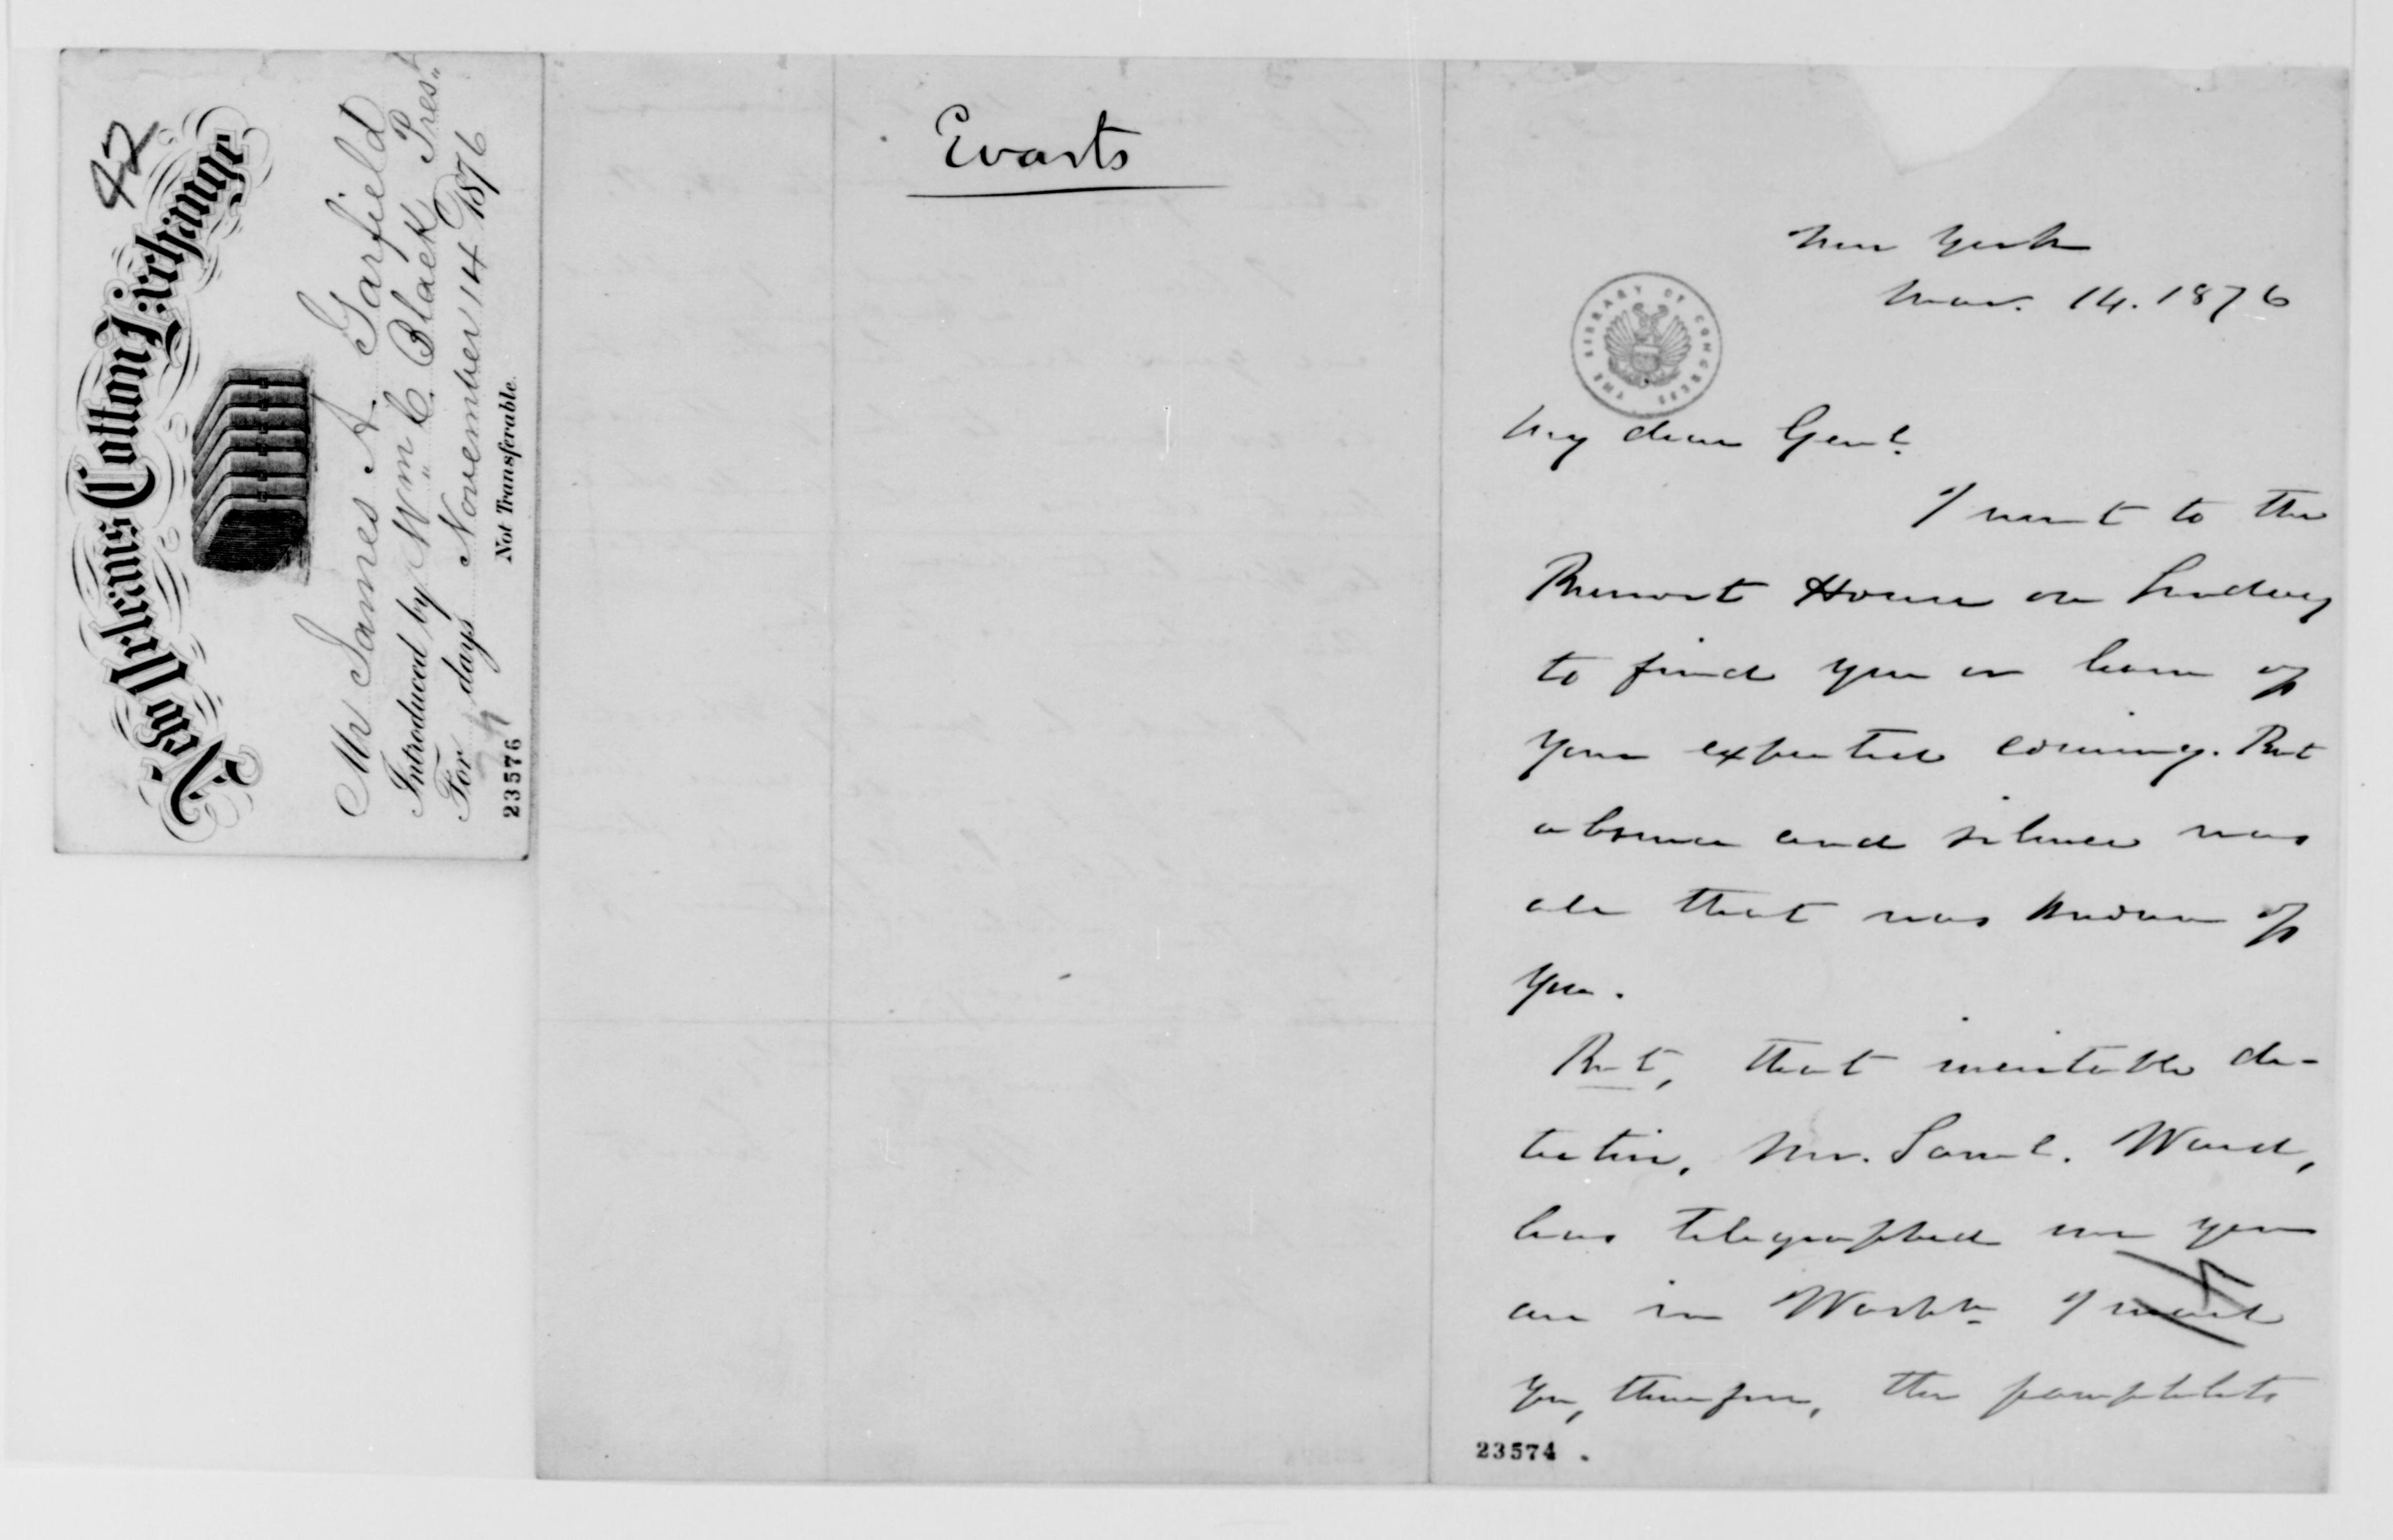 42
New Orleans Cotton Exchange
Mr James A. Garfield
Introduced by Wm C. Black Prest.
For 7 days November 14 1876
Not Transferable.
23576
Evarts
New York
Nov. 14. 1876
THE LIBRARY OF CONGRESS
My dear Genl.
I went to the
Brevoort House on Sunday
to find you or learn of
your expected coming. But
absence and silence was
all that was known of
you.
But, that inevitable de-
tective, Mr. Saml. Ward,
has telegraphed me you
are in Washn. I send
you, therefore, the pamphlets
23574